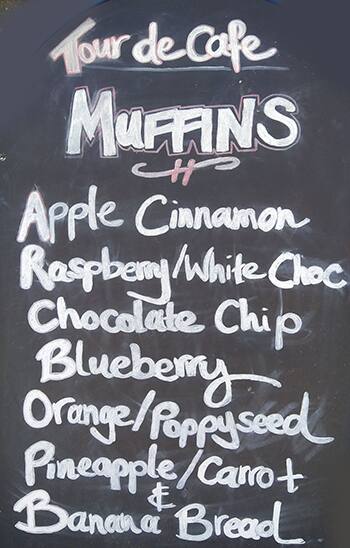 Tour de Cafe
MUFFINS
Apple Cinnamon
Raspberry/White Choc
Chocolate Chip
Blueberry
Orange/Poppyseed
Pineapple/Carrot
&
Banana Bread